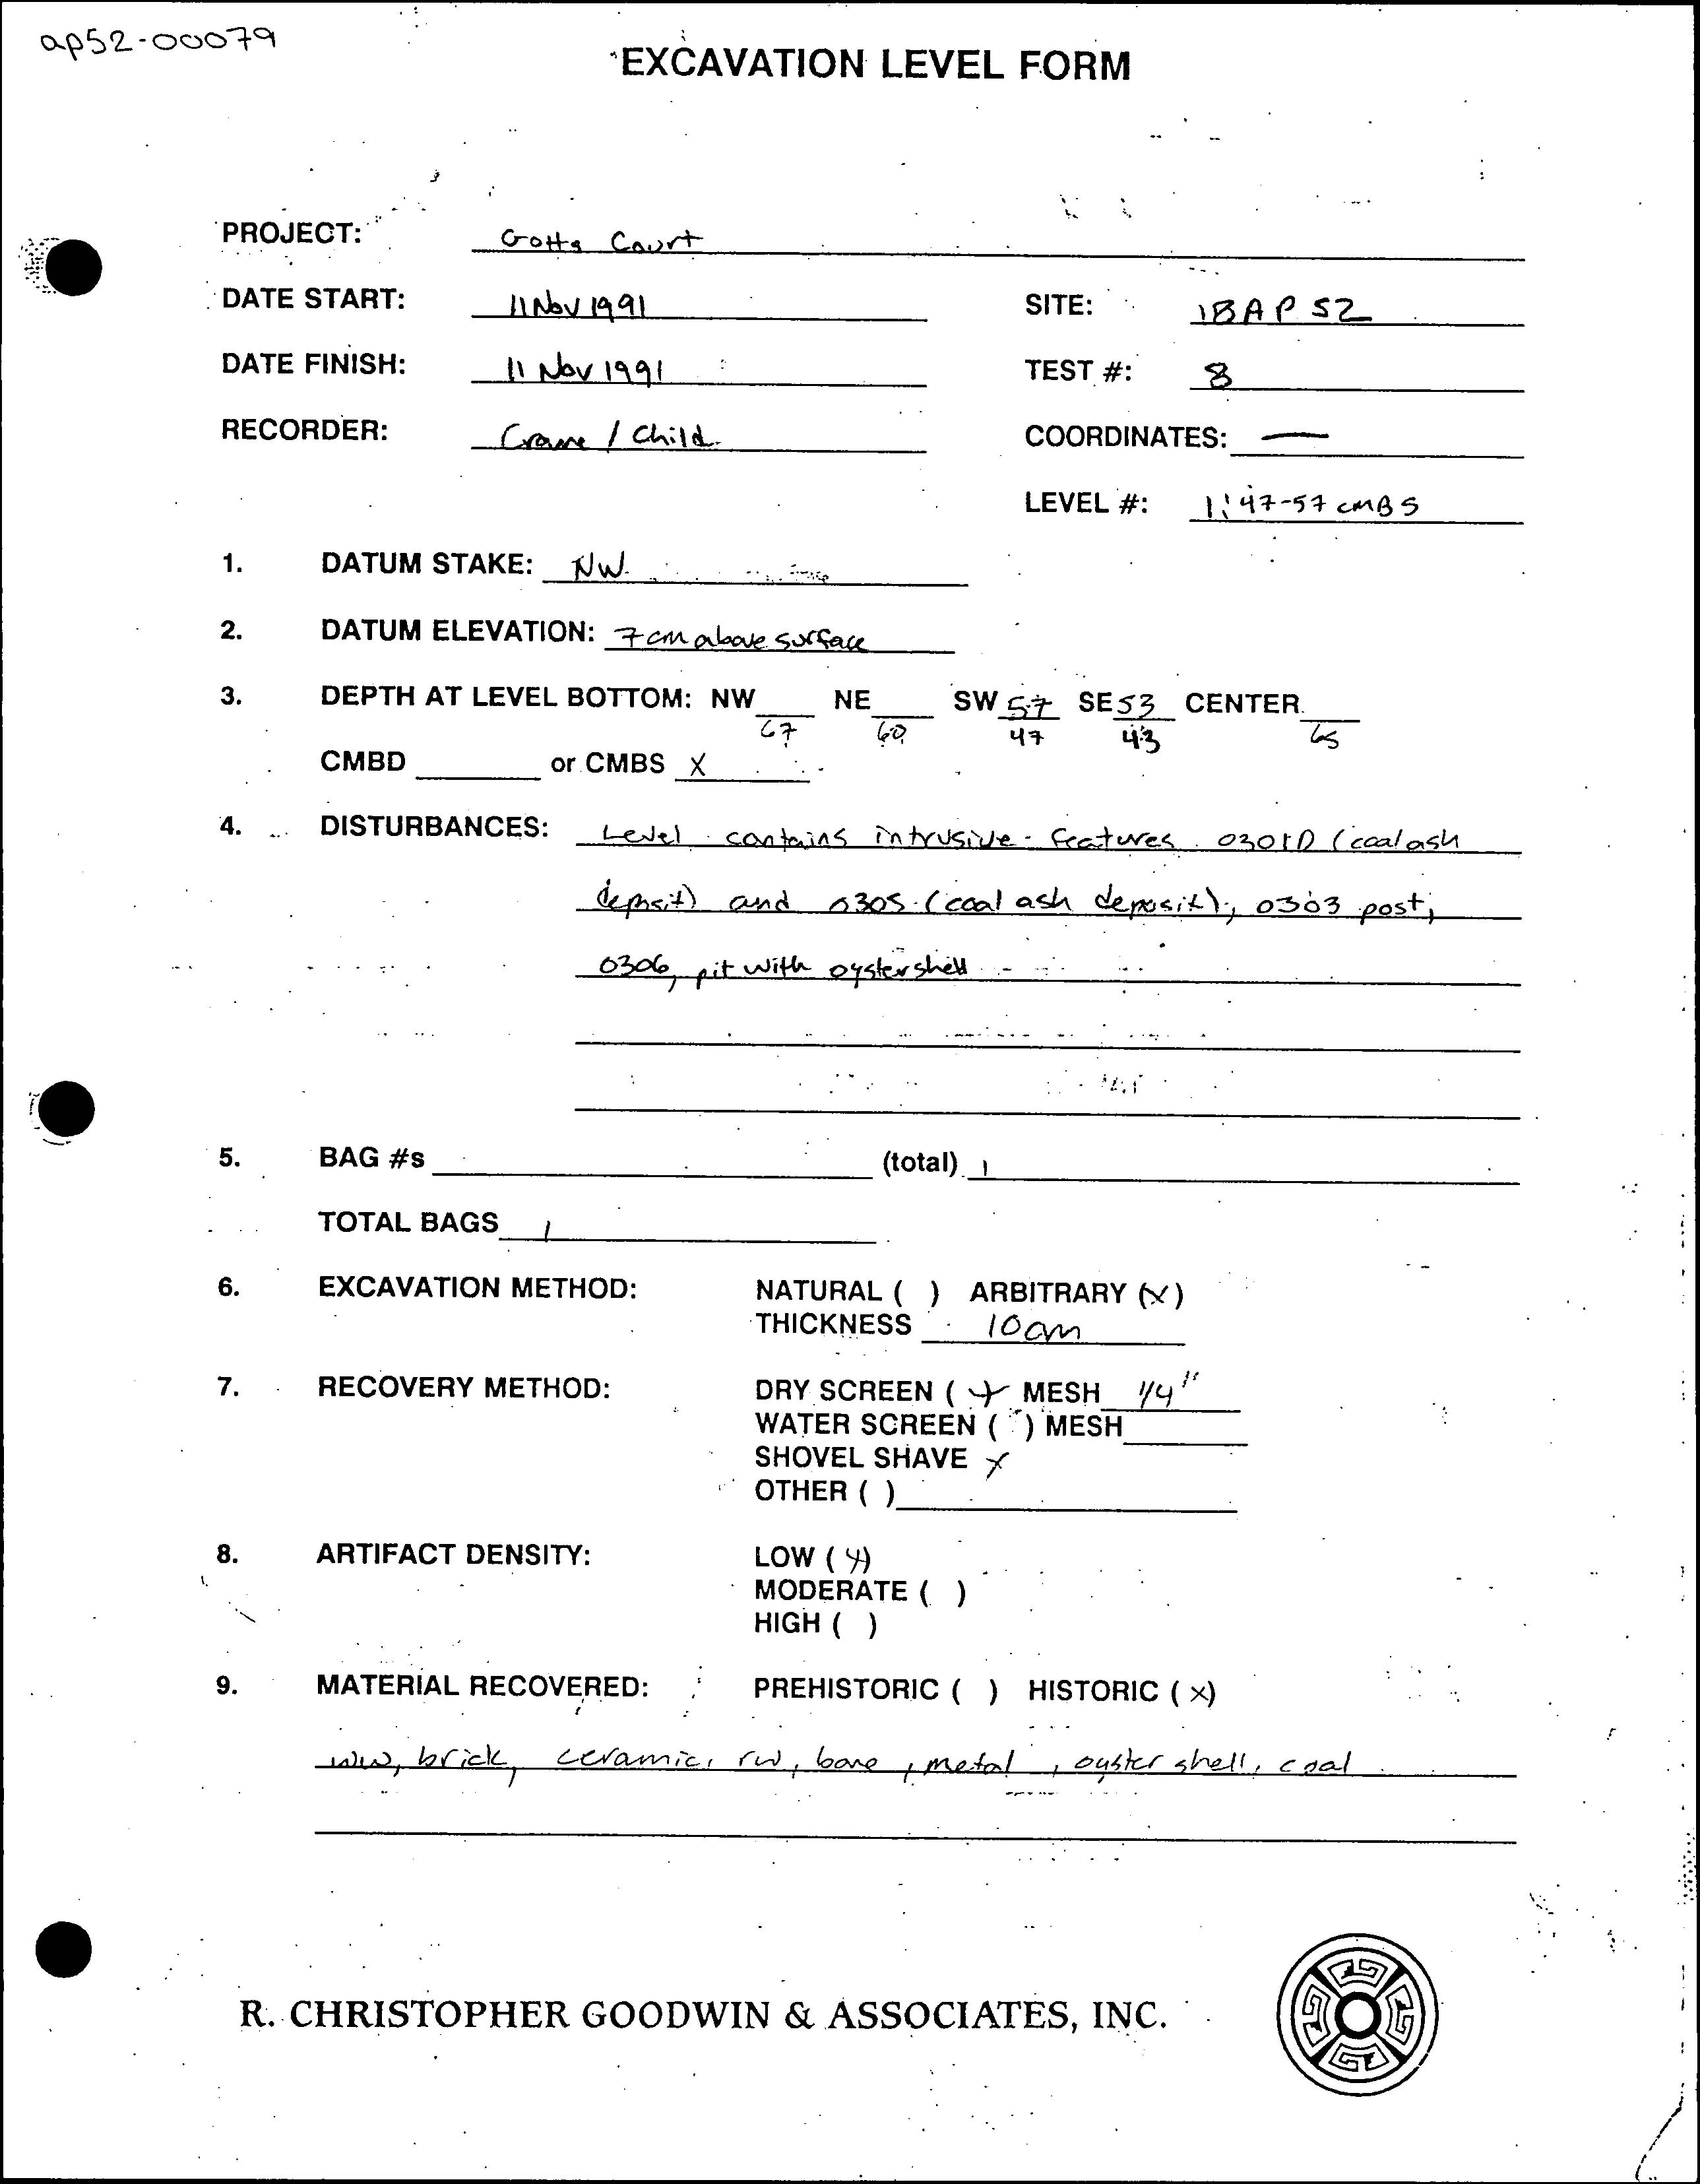 ap52-00079
EXCAVATION LEVEL FORM
PROJECT: Gotts Court
DATE START: 11 Nov 1991 SITE: 18 A P 52
DATE FINISH: 11 Nov 1991 TEST #: 8
RECORDER: Crane / Child COORDINATES: —
LEVEL #: 1: 47-57 cmBS
1. DATUM STAKE: NW
2. DATUM ELEVATION: 7 cm above surface
3. DEPTH AT LEVEL BOTTOM: NW NE SW 57 SE 53 CENTER
67 60 47 43 65
CMBD or CMBS X
4. DISTURBANCES: Level contains intrusive features 0301D (coal ash
deposit) and 0305 (coal ash deposit); 0303 post;
0306, pit with oystershell
5. BAG #s (total) 1
TOTAL BAGS 1
6. EXCAVATION METHOD: NATURAL ( ) ARBITRARY (X)
THICKNESS 10cm
7. RECOVERY METHOD: DRY SCREEN (X) MESH 1/4"
WATER SCREEN ( ) MESH
SHOVEL SHAVE X
OTHER ( )
8. ARTIFACT DENSITY: LOW (X)
MODERATE ( )
HIGH ( )
9. MATERIAL RECOVERED: PREHISTORIC ( ) HISTORIC (X)
ww, brick, ceramic, rw, bone, metal, oyster shell, coal
R. CHRISTOPHER GOODWIN & ASSOCIATES, INC.